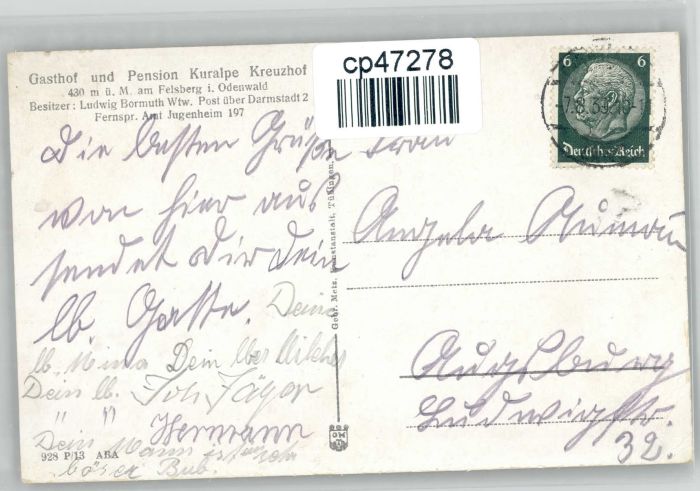 Gasthof und Pension Kuralpe Kreuzhof
430 m ü. M. am Felsberg i. Odenwald
Besitzer: Ludwig Bormuth Wtw. Post über Darmstadt 2
Fernspr. Amt Jugenheim 197
cp47278
6 6
Deutsches Reich
Die besten Grüße
von hier aus
sendet dir dein
lb. Gatte. Deine
lb. Mina Dein
Dein lb. Joh Jäger
" " Hermann
Dein Mann ist
böser Bub.
928 P/13 ABA
Gebr. Metz, Kunstanstalt, Tübingen.
Frau
Angela
Augsburg
Ludwigstr.
32.